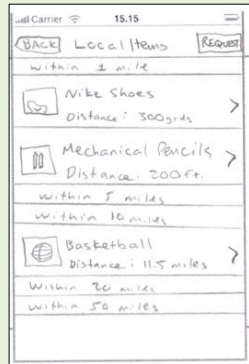 Carrier 15.15
BACK Local Items REQUEST
Within 1 mile
Nike Shoes
Distance: 300yrds
Mechanical Pencils
Distance. 200ft.
Within 5 miles
Within 10 miles
Basketball
Distance: 11.5 miles
Within 20 miles
Within 50 miles